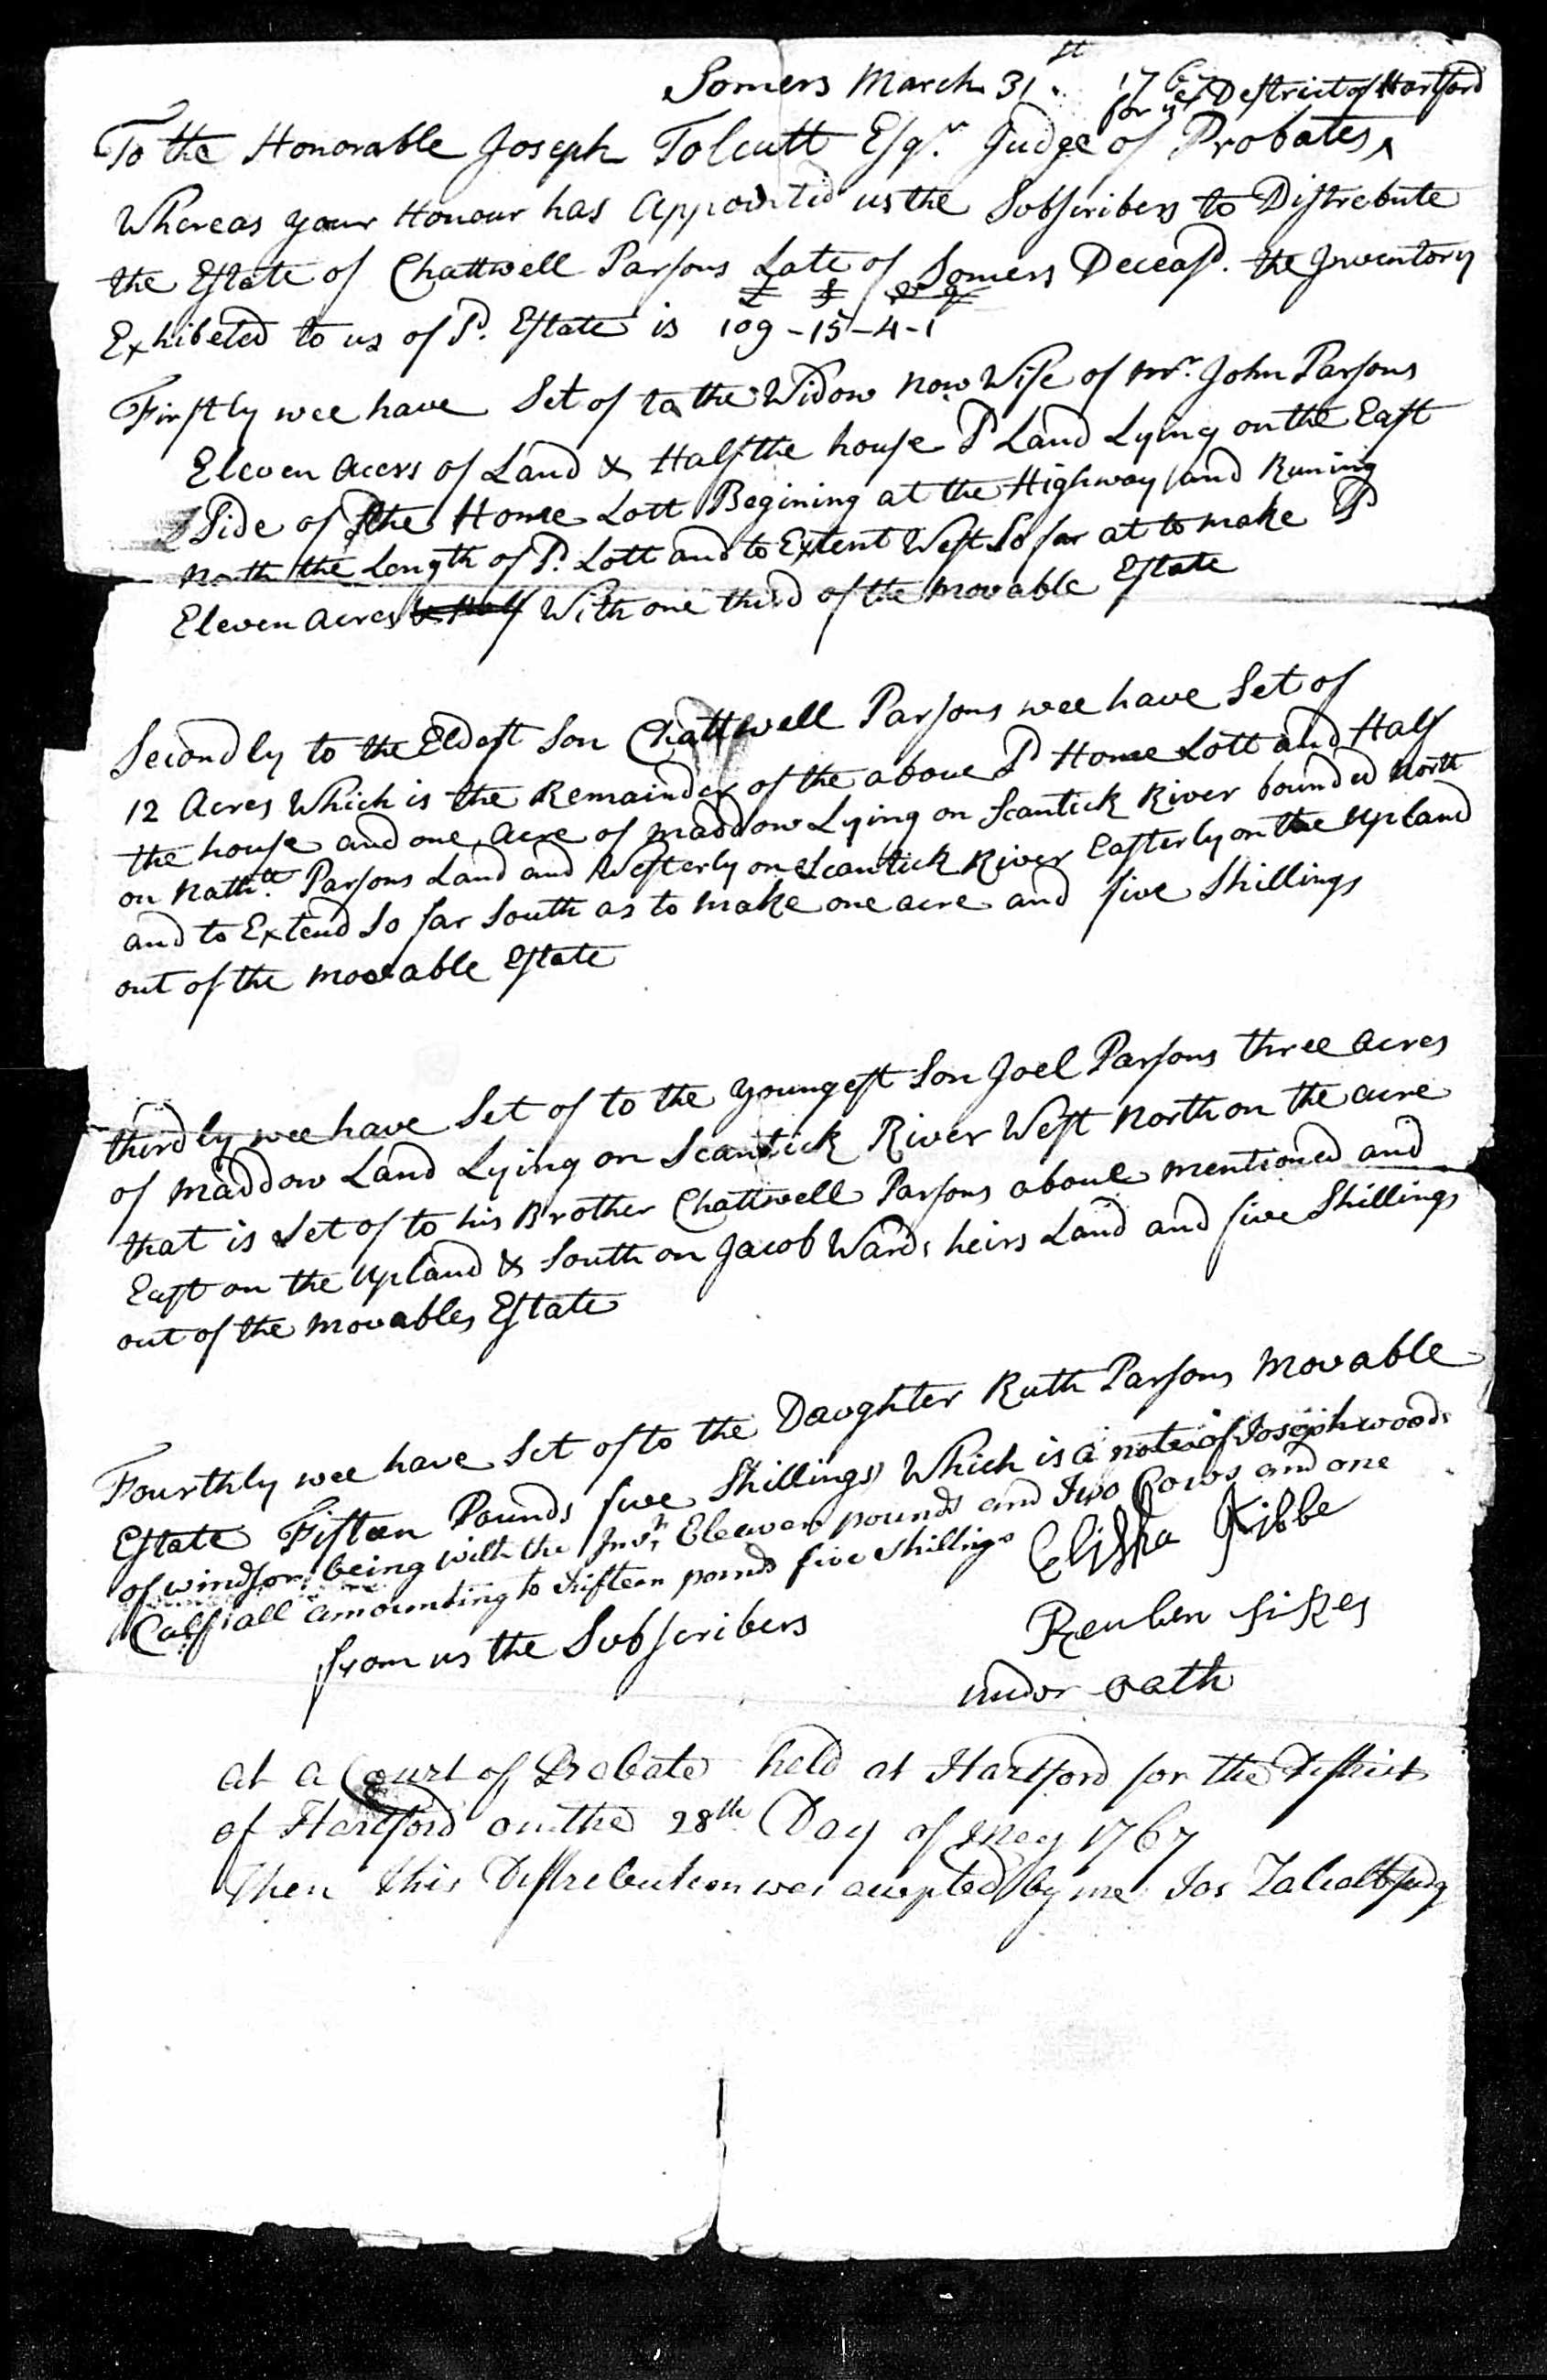 Somers March 31st 1767
for ye Destrict of Hartford
To the Honorable Joseph Tolcutt Esqr. Judge of Probates ^
Whereas your Honour has Appointed us the Subscribers to Distrebute
the Estate of Chattwell Parsons Late of Somers Deceasd. the Inventory
£ s d q
Exhibeted to us of Sd. Estate is 109-15-4-1
Firstly wee have Set of to the Widow now Wife of Mr. John Parsons
Eleven Acers of Land & Half the house Sd Land Lying on the East
Side of the Home Lott Begining at the Highway and Runing
North the Length of Sd. Lott and to Extent West So far at to make Sd
Eleven acres & Half With one third of the movable Estate
Secondly to the Eldest Son Chattwell Parsons wee have Set of
12 Acres Which is the Remainder of the above Sd Home Lott and Half
the house and one acre of maddow Lying on Scantick River bounded North
on Nathll. Parsons Land and Westerly on Scantick River Easterly on the upland
and to Extend So far South as to make one acre and five Shillings
out of the movable Estate
thirdly wee have Set of to the youngest Son Joel Parsons three acres
of maddow Land Lying on Scantick River West North on the acre
that is Set of to his Brother Chattwell Parsons above mentioned and
East on the upland & South on Jacob Wards heirs Land and five Shillings
out of the movables Estate
Fourthly wee have Set of to the Daughter Ruth Parsons Movable
Estate Fifteen Pounds five Shillings Which is a note of Joseph woods
of windsor being with the Intr Eleaven pounds and Two Cows and one
Calf all amounting to Fifteen pounds five shillings
Elisha Kibbe
from us the Subscribers
Reuben Sikes
under oath
at a Court of Probate held at Hartford for the District
of Hartford on the 28th Day of May 1767
Then this Distrebution was accepted by me Jos Talcott Judg